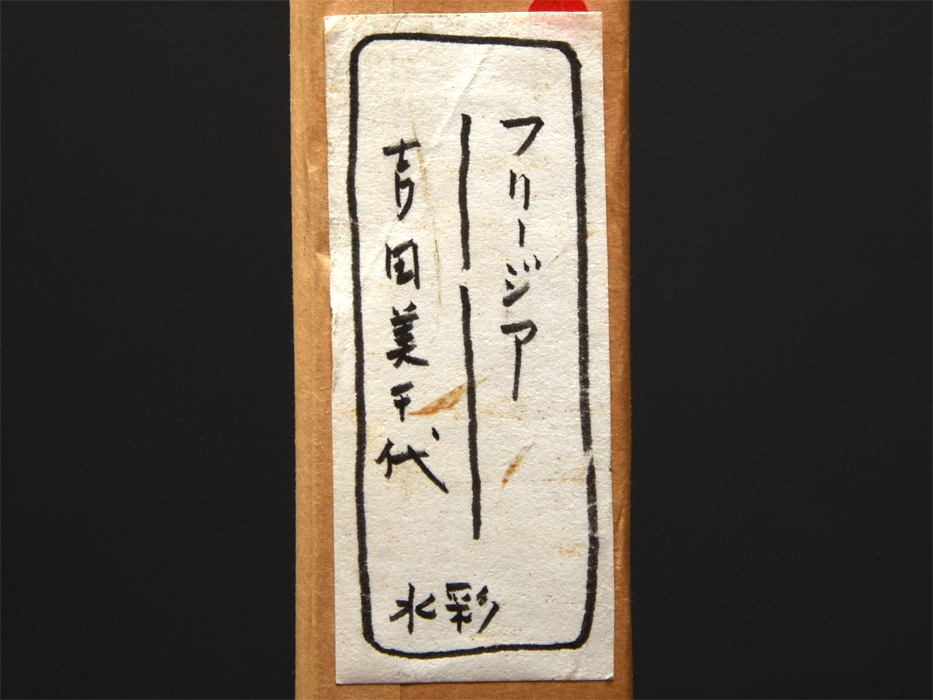 フリージア
吉国美千代
水彩